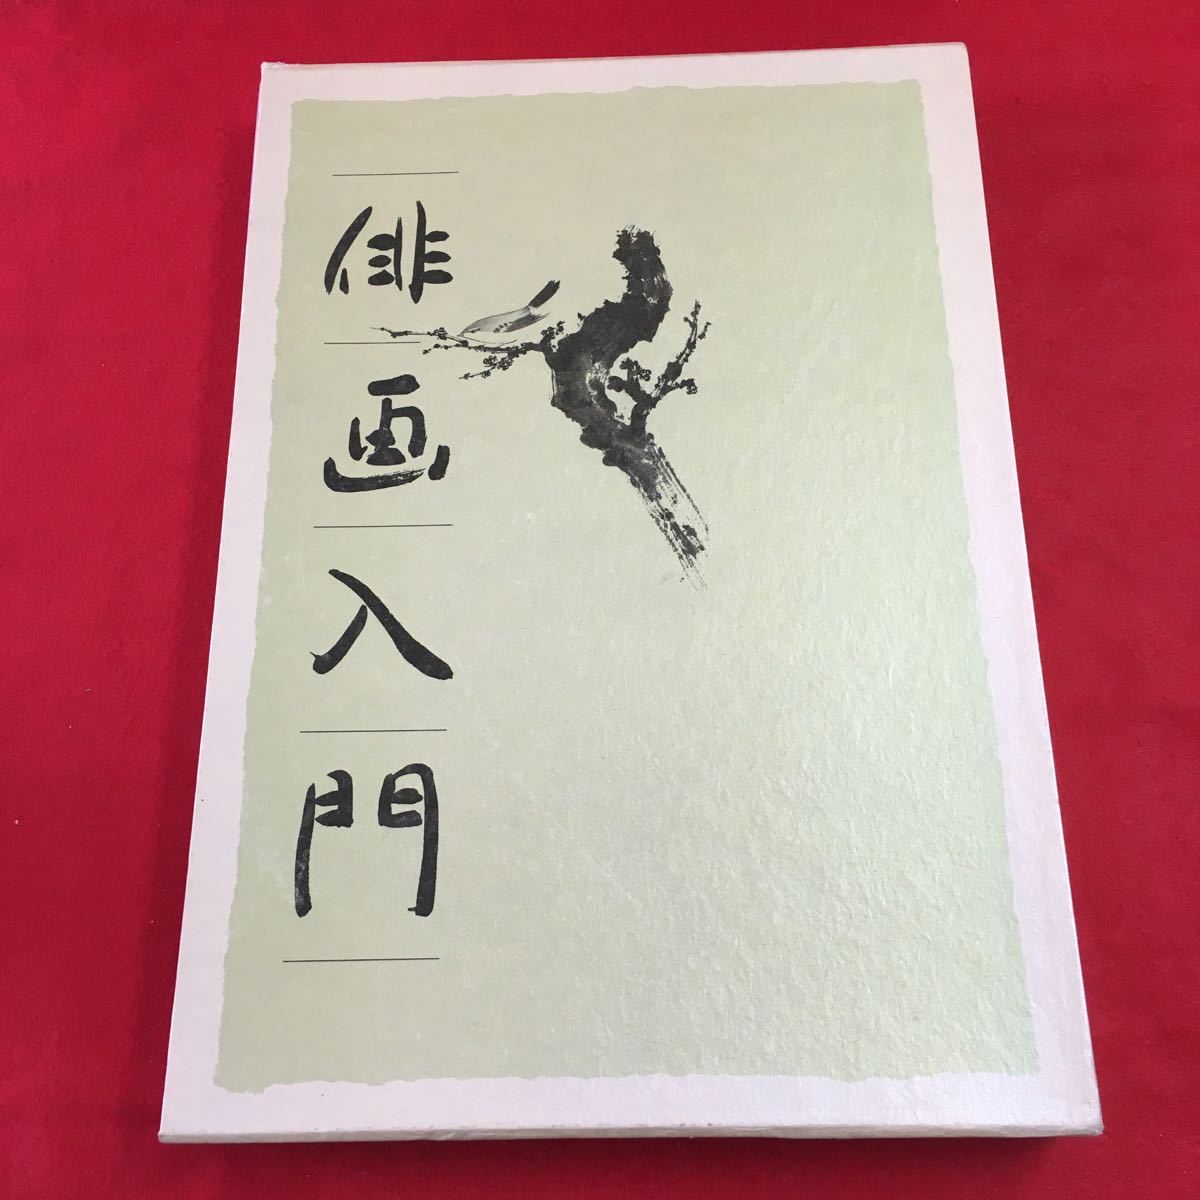 俳画入門